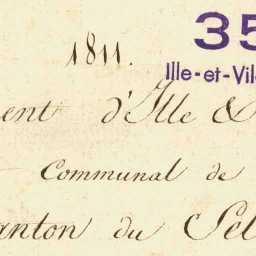 1811.
35
Ille-et-Vil
ent d'Ille &
Communal de
anton du Sel